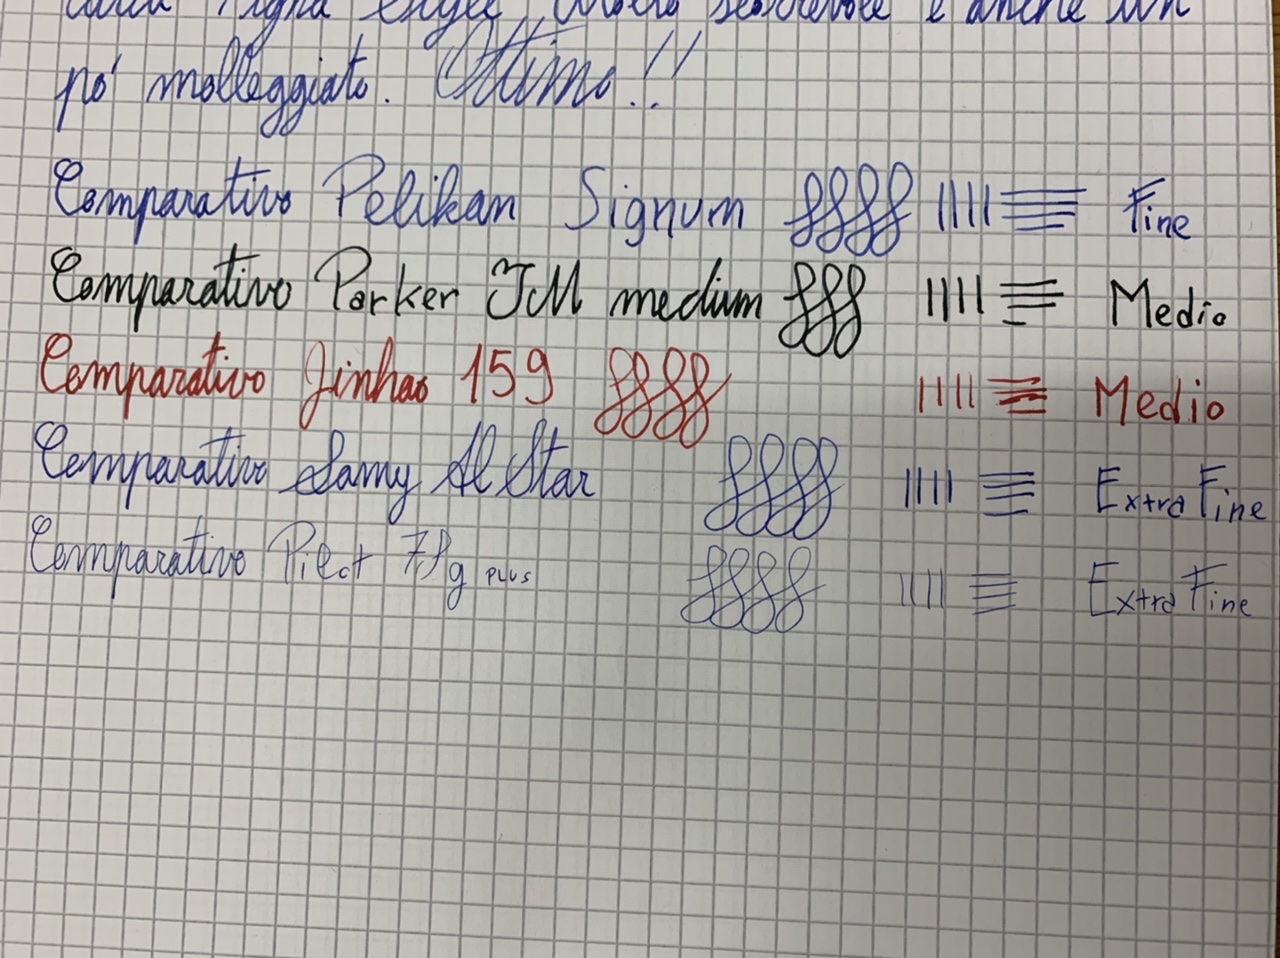 molto scorrevole e anche un
po' molleggiato. Ottimo!!
Comparativo Pelikan Signum Fine
Comparativo Parker IM medium Medio
Comparativo Jinhao 159 Medio
Comparativo Lamy Al Star Extra Fine
Comparativo Pilot 78g PLUS Extra Fine